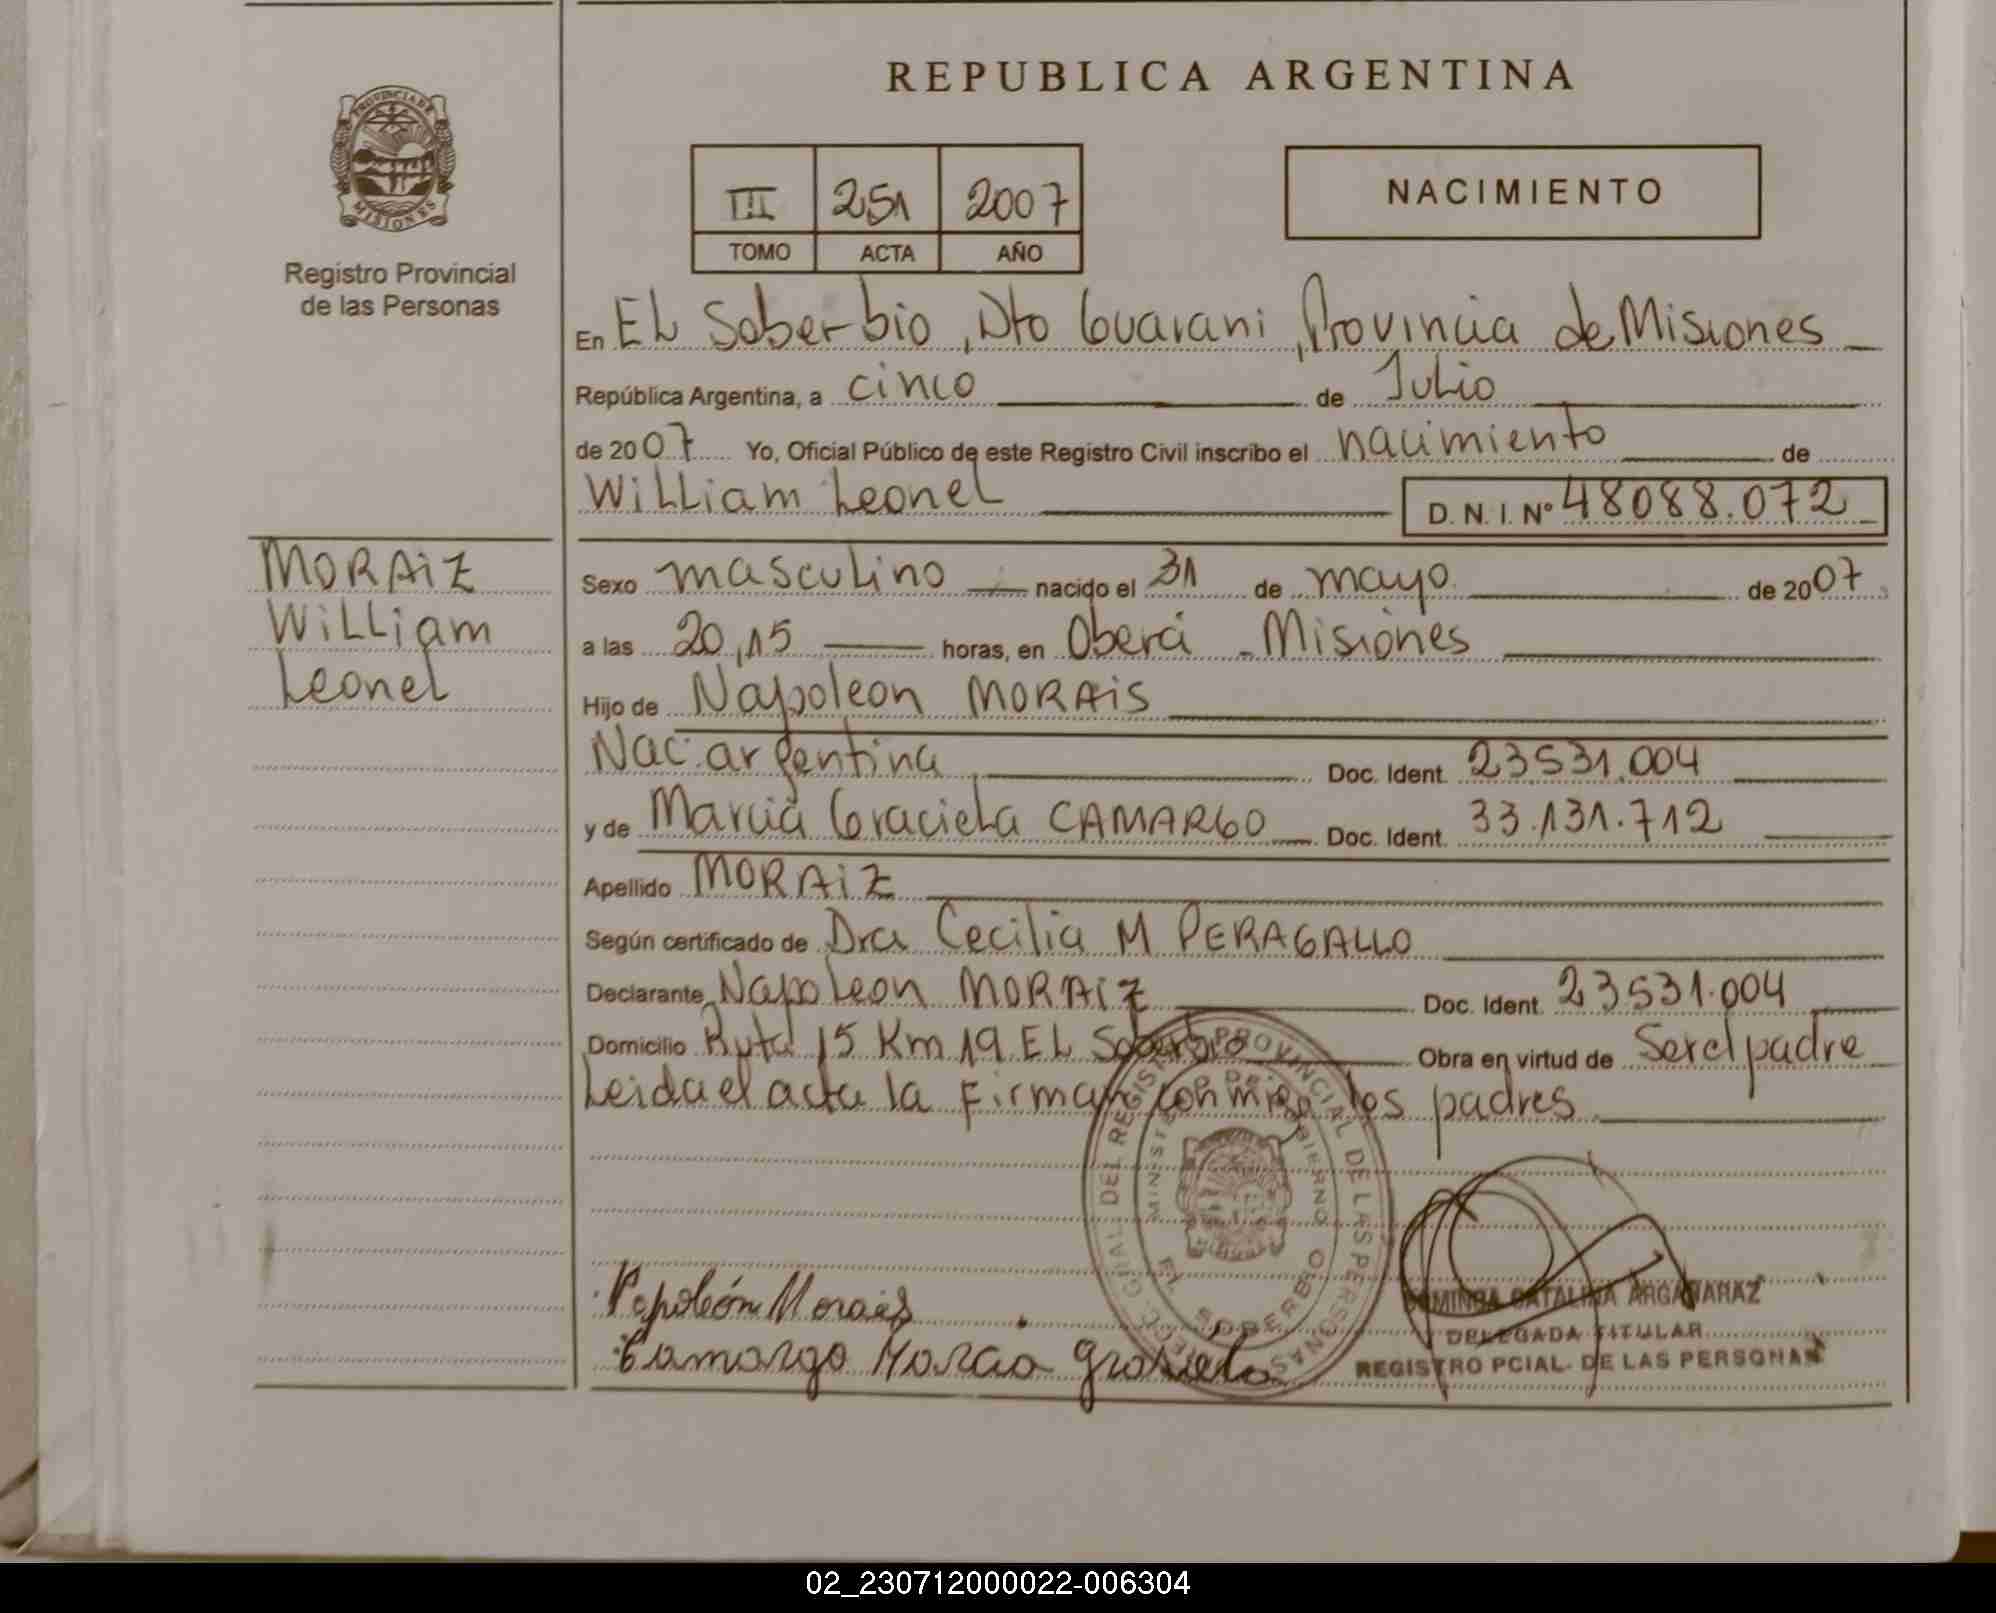 REPUBLICA ARGENTINA
PROVINCIA DE
MISIONES
Registro Provincial
de las Personas
III 251 2007
TOMO ACTA AÑO
NACIMIENTO
En EL Soberbio, Dto Guarani, Provincia de Misiones
República Argentina, a cinco de Julio
de 2007 Yo, Oficial Público de este Registro Civil inscribo el nacimiento de
William Leonel D. N. I. Nº 48088.072
MORAiZ
William
Leonel
Sexo masculino nacido el 31 de mayo de 2007
a las 20,15 horas, en Oberá - Misiones
Hijo de Napoleon MORAiS
Nac. argentina Doc. Ident. 23531.004
y de Marcia Graciela CAMARGO Doc. Ident. 33.131.712
Apellido MORAiZ
Según certificado de Dra Cecilia M PERAGALLO
Declarante Napoleon MORAiZ Doc. Ident. 23531.004
Domicilio Ruta 15 Km 19 EL Soberbio Obra en virtud de Ser el padre
Leida el acta la Firman conmigo los padres
DIRECC. GRAL. DEL REGISTRO PROVINCIAL DE LAS PERSONAS
MINISTERIO DE GOBIERNO
EL SOBERBIO
Napoleón Morais
Camargo Marcia Graciela
DOMINGA CATALINA ARGAÑARAZ
DELEGADA TITULAR
REGISTRO PCIAL. DE LAS PERSONAS
02_230712000022-006304